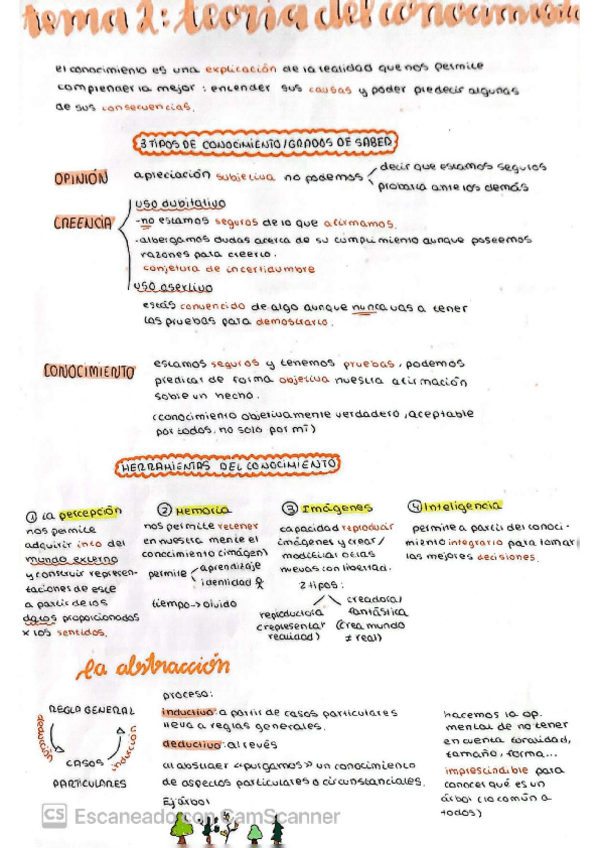 tema 2: teoría del conocimiento
el conocimiento es una explicación de la realidad que nos permite
comprenderla mejor: entender sus causas y poder predecir algunas
de sus consecuencias.
3 TIPOS DE CONOCIMIENTO/GRADOS DE SABER
OPINIÓN apreciación subjetiva no podemos decir que estamos seguros
probarla ante los demás
CREENCIA
uso dubitativo
-no estamos seguros de lo que afirmamos.
-albergamos dudas acerca de su cumplimiento aunque poseemos
razones para creerlo.
conjetura de incertidumbre
uso asertivo
estás convencido de algo aunque nunca vas a tener
las pruebas para demostrarlo.
CONOCIMIENTO estamos seguros y tenemos pruebas, podemos
predicar de forma objetiva nuestra afirmación
sobre un hecho.
(conocimiento objetivamente verdadero, aceptable
por todos, no solo por mí)
HERRAMIENTAS DEL CONOCIMIENTO
① La percepción
nos permite
adquirir info del
mundo externo
y construir represen-
taciones de este
a partir de los
datos proporcionados
x los sentidos.
② Memoria
nos permite retener
en nuestra mente el
conocimiento (imágen)
permite aprendizaje
identidad
tiempo→olvido
③ Imágenes
capacidad reproducir
imágenes y crear/
modificar otras
nuevas con libertad.
2 tipos:
reproductora
(representar
realidad)
creadora/
fantástica
(crea mundo
≠ real)
④ Inteligencia
permite a partir del conoci-
miento integrarlo para tomar
las mejores decisiones.
La abstracción
REGLA GENERAL
deducción
inducción
CASOS
PARTICULARES
proceso:
inductivo: a partir de casos particulares
lleva a reglas generales.
deductivo: al revés
al abstraer «purgamos» un conocimiento
de aspectos particulares o circunstanciales.
Ej: árbol
hacemos la op.
mental de no tener
en cuenta tonalidad,
tamaño, forma...
imprescindible para
conocer qué es un
árbol (lo común a
todos)
CS Escaneado con CamScanner